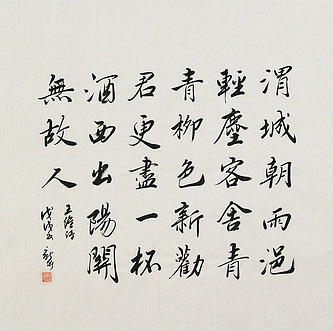 渭城朝雨浥
輕塵客舍青
青柳色新勸
君更盡一杯
酒西出陽關
無故人
王維詩
戊戌